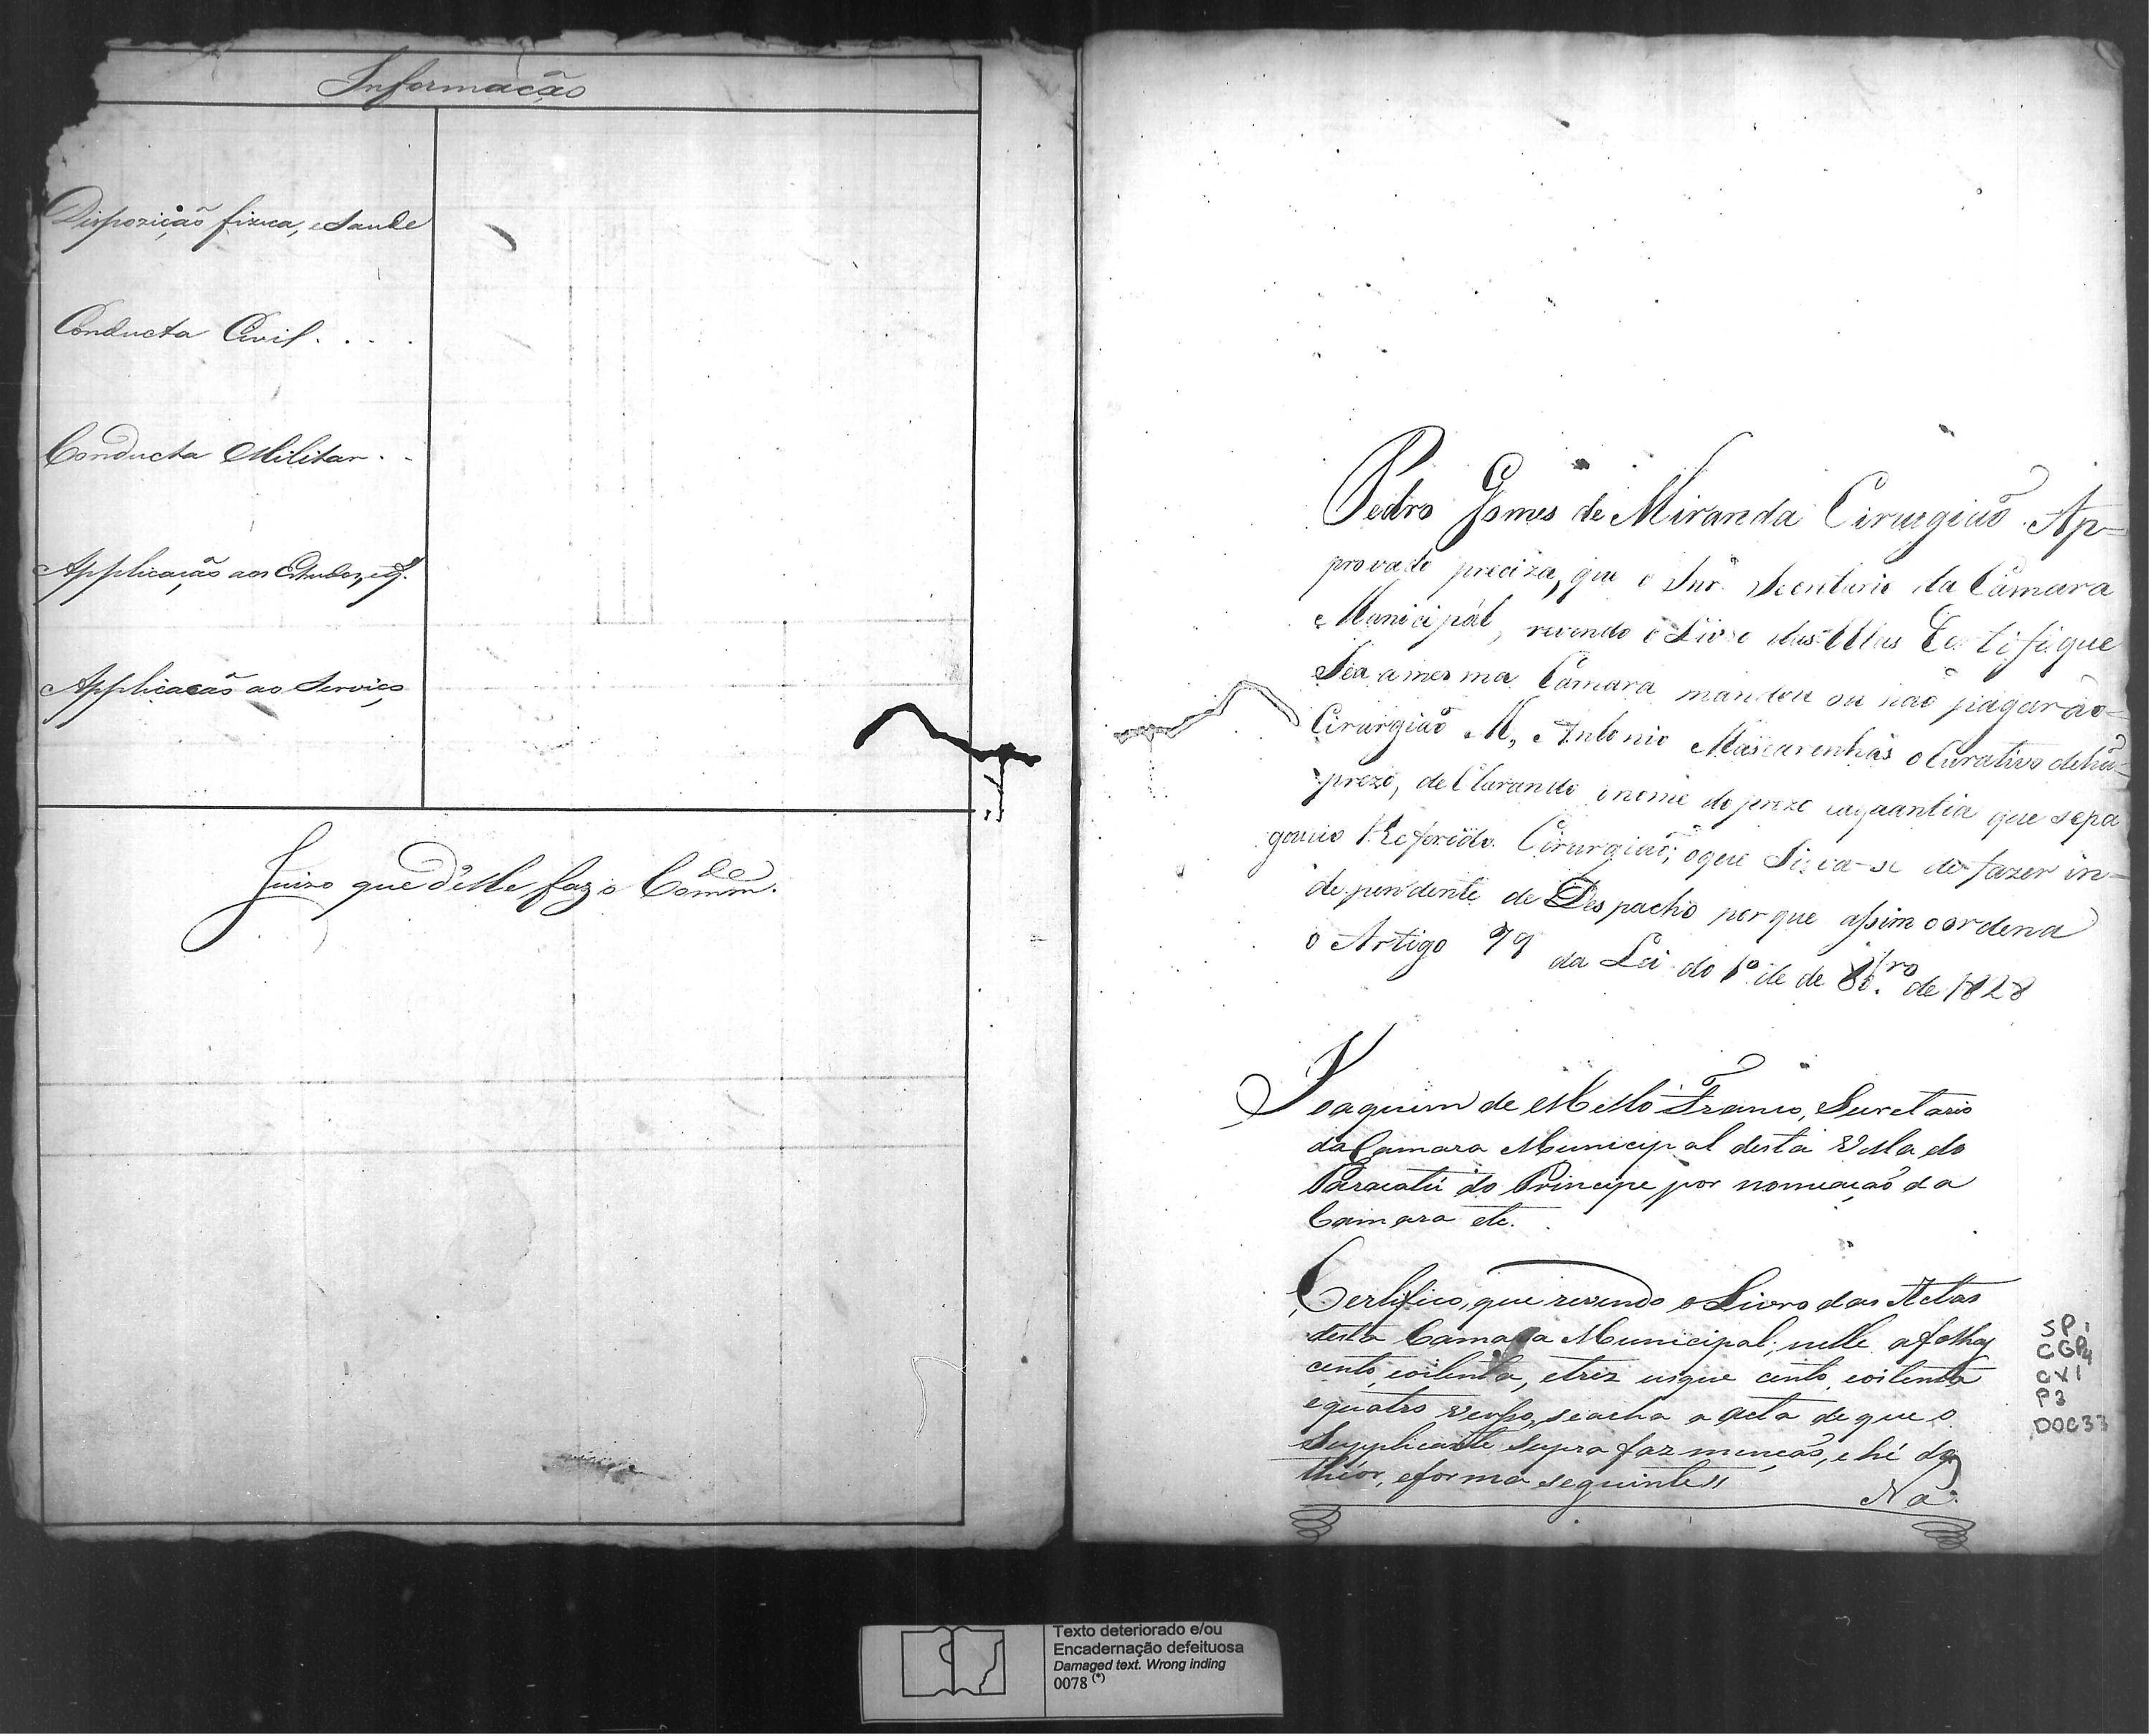 Informacão
Dispozição fizica, e Saude
Conducta Civil. . . .
Conducta Militar. .
Applicação aos Estudos, etc.
Applicacão ao Serviço
Juizo que d'elle faz o Comm.de
Pedro Gomes de Miranda Cirurgiaõ Ap-
provado preciza, que o Snr. Secretario da Câmara
Municipal, revendo o Livro das Actas Certifique
Sea a mesma Câmara mandou ou naõ pagar ao
Cirurgiaõ M, Antonio Mascarenhas o Curativo de hũ
prezo, de Clarando o nome do prezo e aquantia que sepa
gou ao Referido Cirurgiaõ; oque Sirva-se de fazer in-
dependente de Despacho por que assim o ordena
o Artigo 79 da Lei do 1º de de 8bro. de 1828
Joaquim de Mello Franco, Secretario
da Camara Municipal desta Villa do
Paracatú do Principe por nomeaçaõ da
Camara etc.
Certifico, que revendo o Livro das Actas
desta Camara Municipal; nelle a folhas
cento, eoitenta, etrez usque cento, eoitenta
equatro verso, seacha a acta de que o
Supplicante supra faz mençaõ, e hé do
théor, eforma seguintes
Na
SP1
CGP4
CX1
P3
DOC33
Texto deteriorado e/ou
Encadernação defeituosa
Damaged text. Wrong inding
0078 (*)